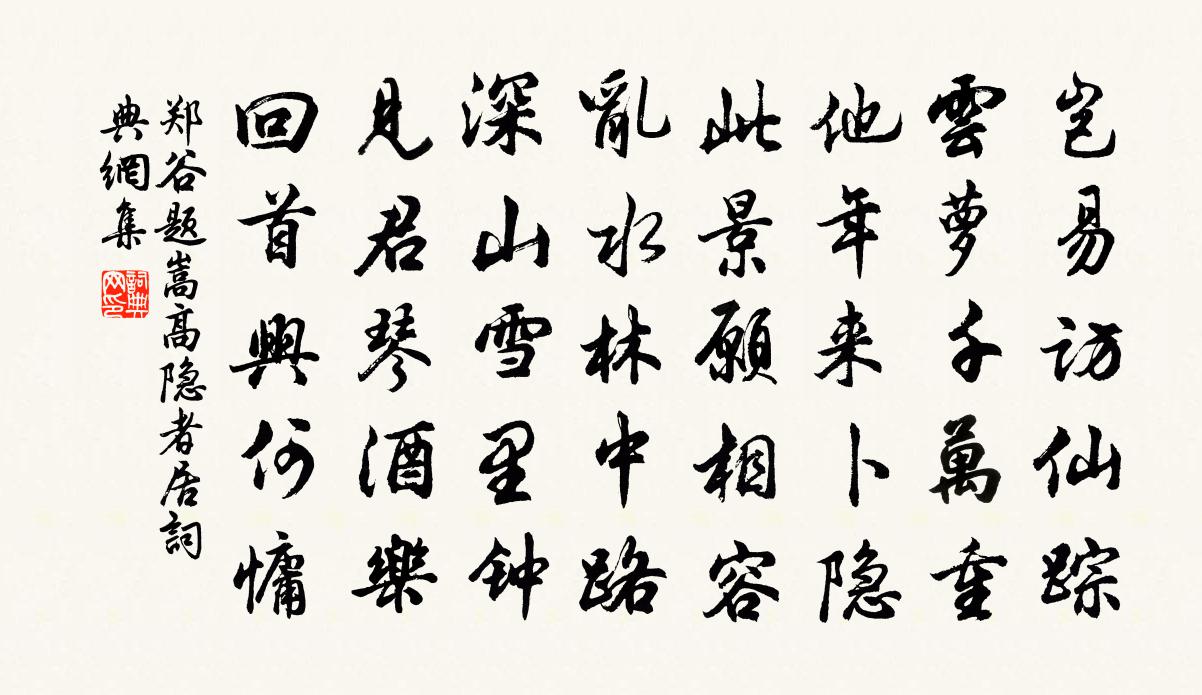 岂易访仙踪
雲萝千萬重
他年来卜隐
此景願相容
亂水林中路
深山雪里钟
見君琴酒樂
回首興何慵
郑谷题嵩高隐者居詞
典網集
詞典
网印